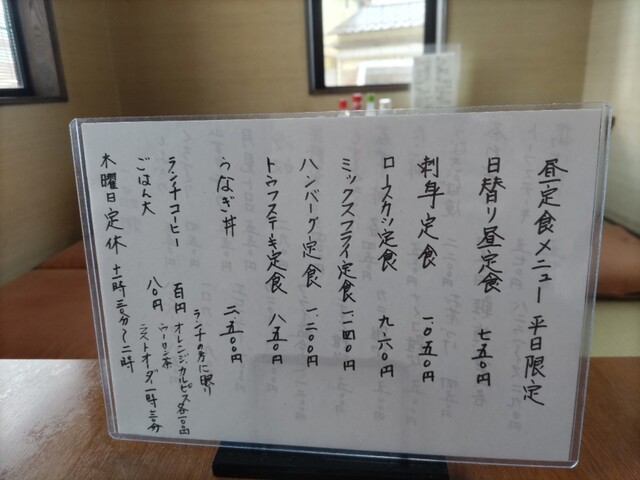 昼定食メニュー 平日限定
日替り昼定食 七五0円
刺身定食 一、0五0円
ロースカツ定食 九、六0円
ミックスフライ定食 一、一四0円
ハンバーグ定食 一、二00円
トウフステーキ定食 八五0円
うなぎ丼 二、五00円
ランチの方に限り
ランチコーヒー 百円 オレンジ、カルピス各一0円
ウーロン茶
ごはん大 八0円
ラストオーダー一時三0分
木曜日定休 十一時三0分〜二時